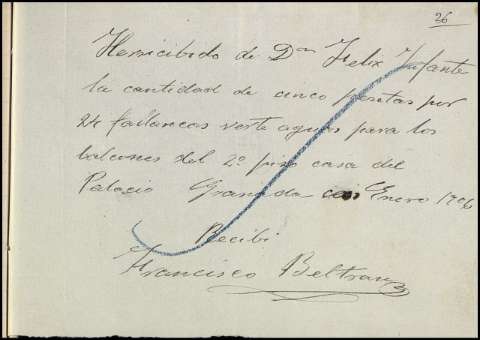 26
He recibido de Dn Felix Infante
la cantidad de cinco pesetas por
24 palancas vierte aguas para los
balcones del 2º piso casa del
Palacio Granada Enero 1906
Recibi
Francisco Beltran